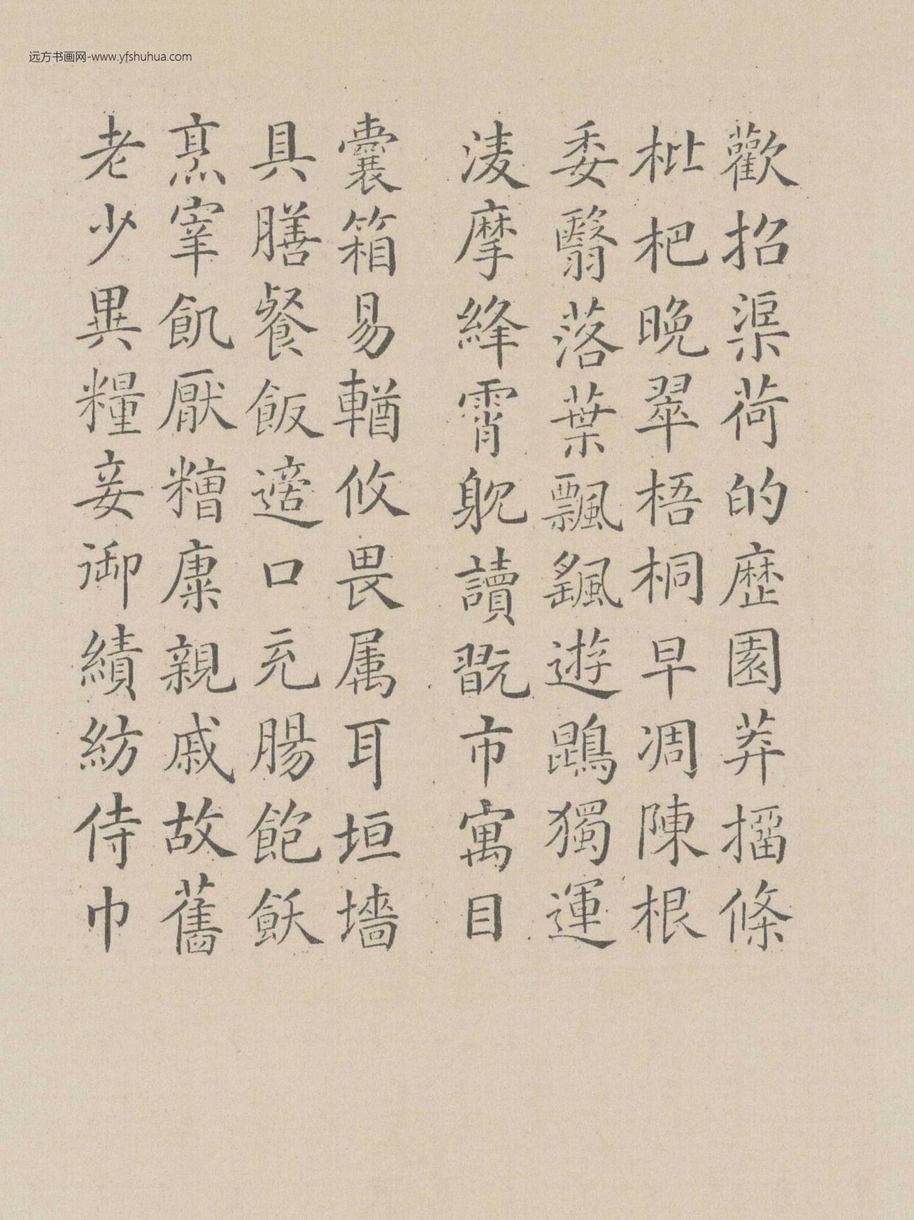 远方书画网-www.yfshuhua.com
歡招渠荷的歷園莽擂條
枇杷晚翠梧桐早凋陳根
委翳落葉飄颻遊鵾獨運
淩摩絳霄躭讀翫市寓目
囊箱易輶攸畏属耳垣墻
具膳餐飯適口充腸飽飫
烹宰飢厭糟糠親戚故舊
老少異糧妾御績紡侍巾